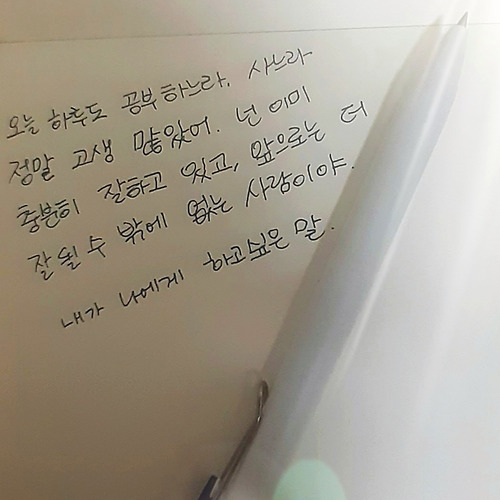 오늘 하루도 공부하느라, 사느라
정말 고생 많았어. 넌 이미
충분히 잘하고 있고, 앞으로는 더
잘 될 수 밖에 없는 사람이야.
내가 나에게 하고싶은 말.